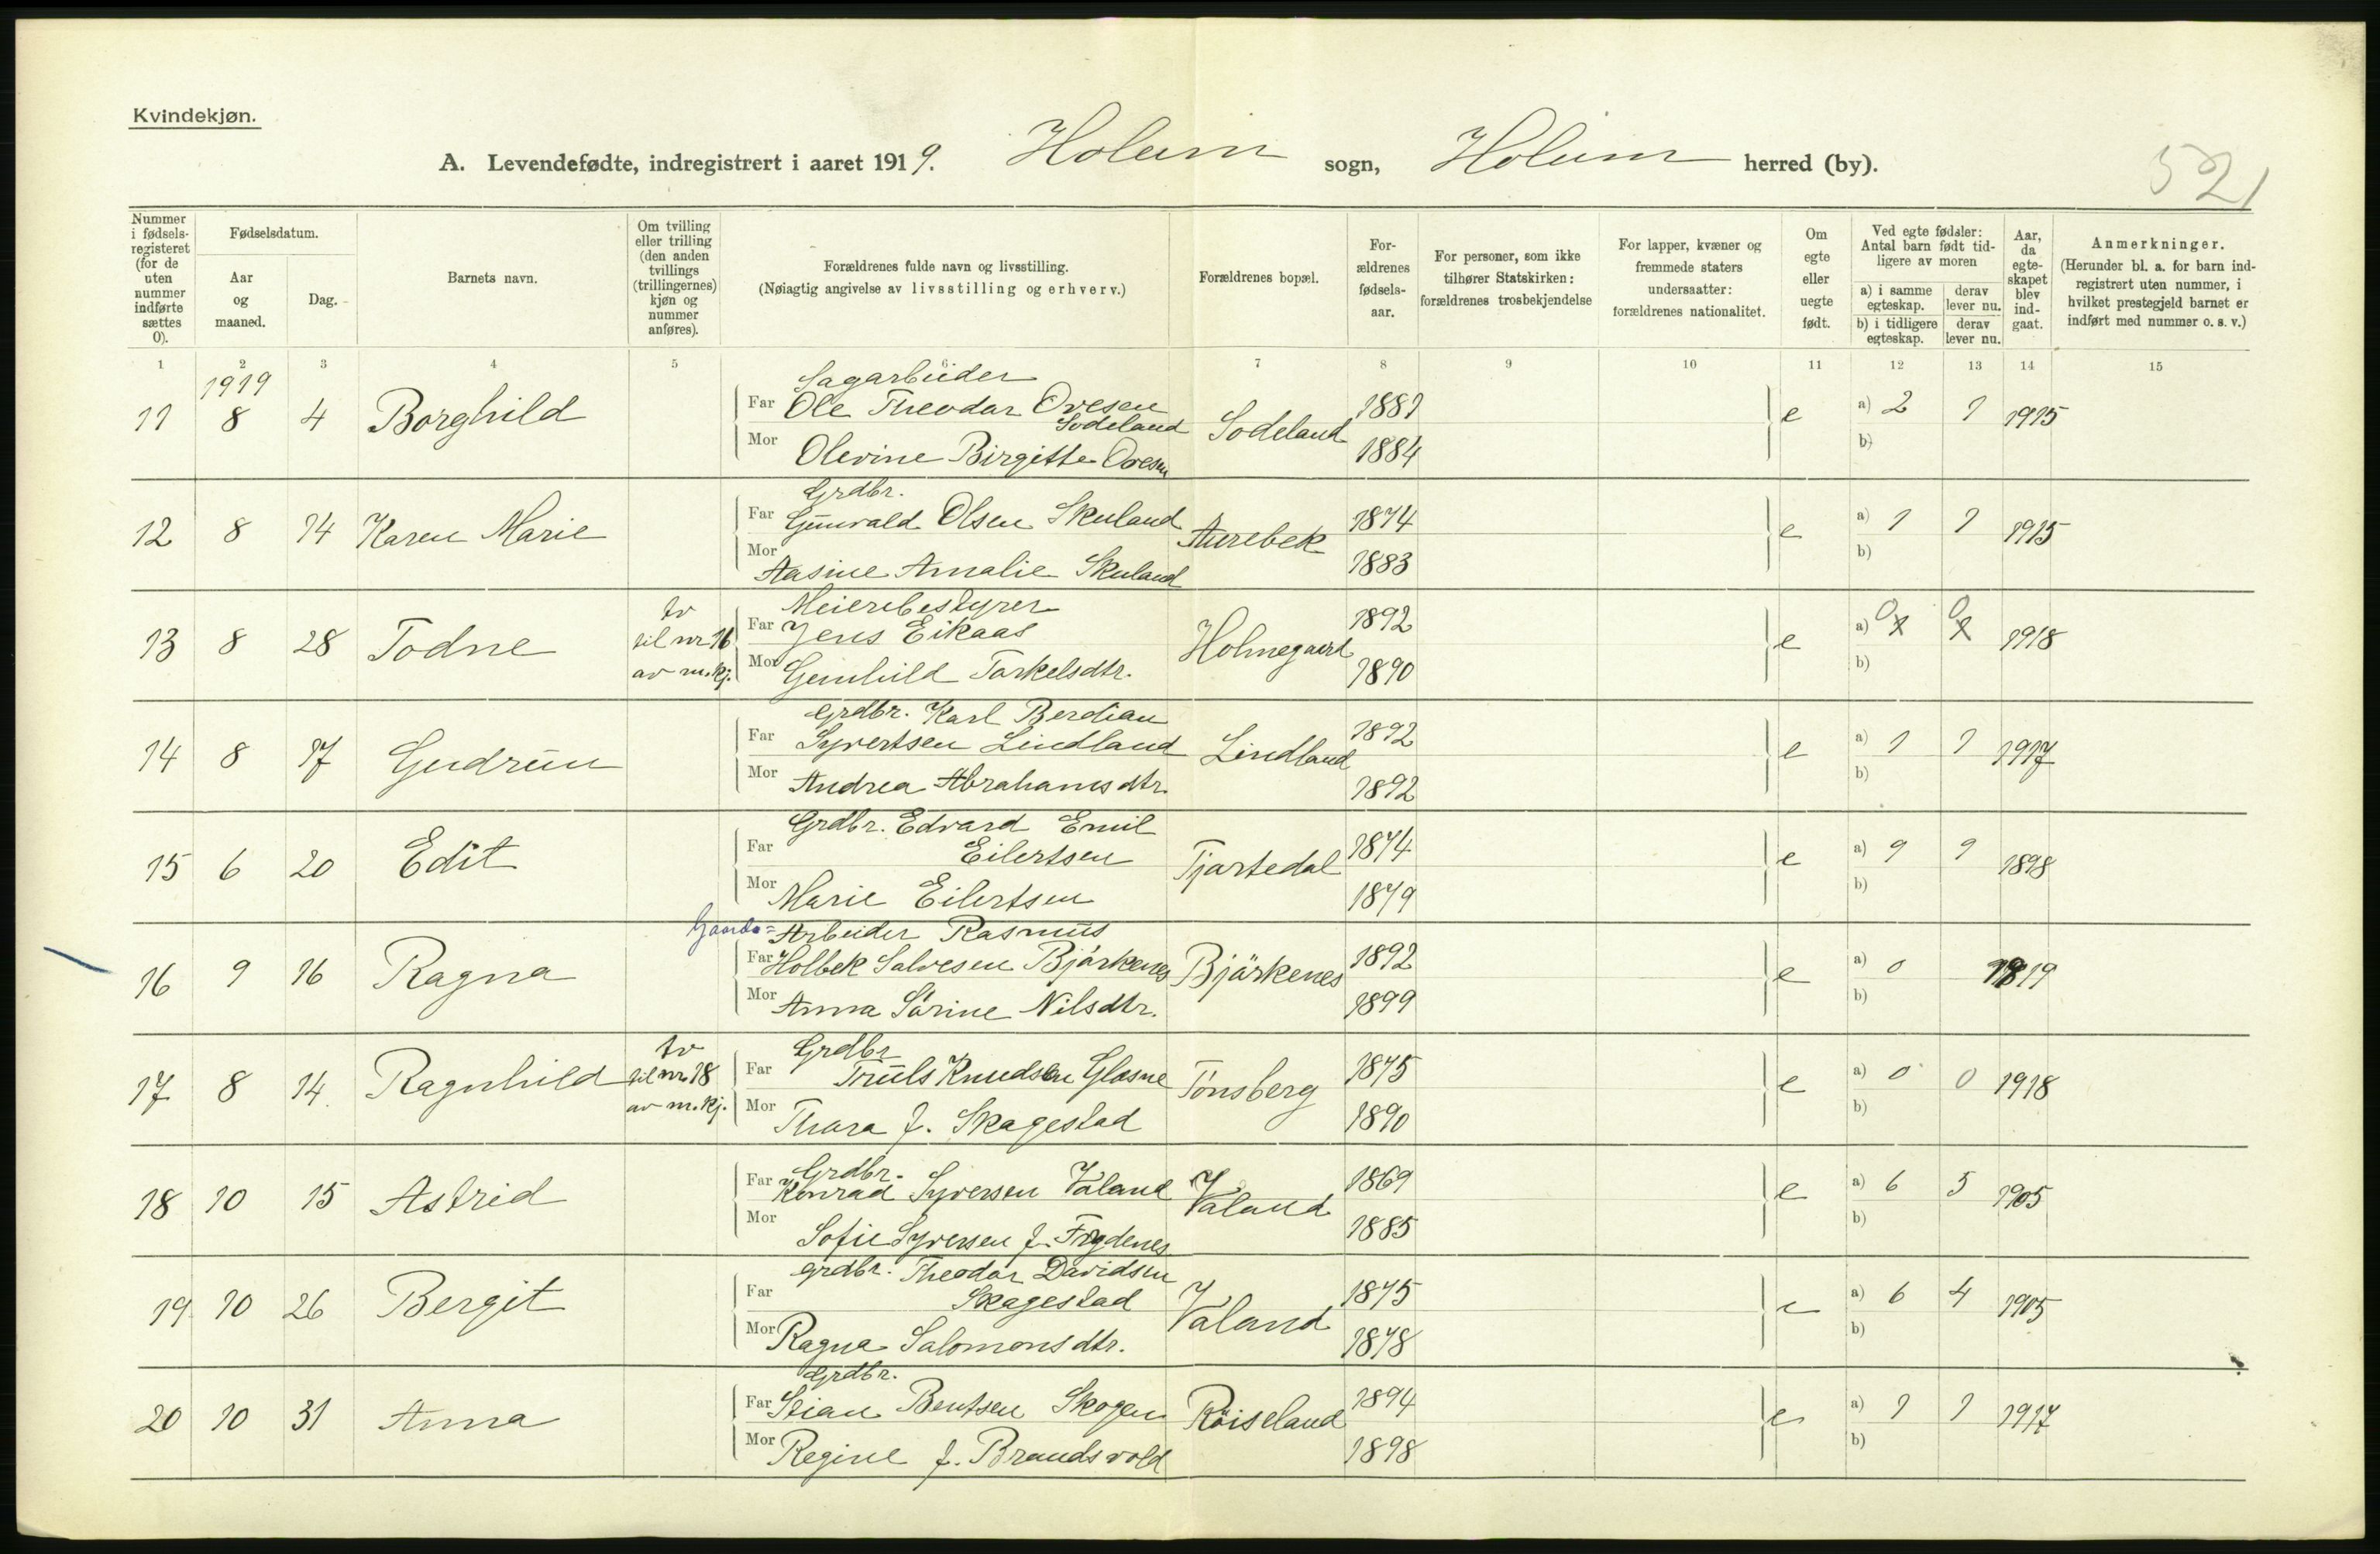 Kvindekjøn.
A. Levendefødte, indregistrert i aaret 1919. Holum sogn, Holum herred (by).
521
Nummer i fødsels-registeret (for de uten nummer indførte sættes 0).
Fødselsdatum.
Aar og maaned.
Dag.
Barnets navn.
Om tvilling eller trilling (den anden tvillings (trillingernes) kjøn og nummer anføres).
Forældrenes fulde navn og livsstilling.
(Nøiagtig angivelse av livsstilling og erhverv.)
Forældrenes bopæl.
For-ældrenes fødsels-aar.
For personer, som ikke tilhører Statskirken: forældrenes trosbekjendelse
For lapper, kvæner og fremmede staters undersaatter: forældrenes nationalitet.
Om egte eller uegte født.
Ved egte fødsler: Antal barn født tid-ligere av moren
a) i samme egteskap. derav lever nu.
b) i tidligere egteskap. derav lever nu.
Aar, da egte-skapet blev ind-gaat.
Anmerkninger.
(Herunder bl. a. for barn ind-registrert uten nummer, i hvilket prestegjeld barnet er indført med nummer o. s. v.)
1 2 3 4 5 6 7 8 9 10 11 12 13 14 15
1919
Sagarbeider
11 8 4 Borghild Far Ole Theodor Ovesen Sodeland Sodeland 1881 e a) 2 1 1915
Mor Olevine Birgitte Ovesen 1884 b)
Grdbr.
12 8 14 Karen Marie Far Gunvald Olsen Skuland Aurebek 1874 e a) 1 1 1915
Mor Aasine Amalie Skuland 1883 b)
Meieribestyrer
13 8 28 Todne tv til nr 16 av m.kj. Far Jens Eikaas Holmegaard 1892 e a) 0 0 1918
Mor Gunhild Torkelsdtr. 1890 b)
Grdbr. Karl Berdian
14 8 17 Gudrun Far Syvertsen Lindland Lindland 1892 e a) 1 1 1917
Mor Andrea Abrahamsdtr. 1892 b)
Grdbr. Edvard Emil
15 6 20 Edit Far Eilertsen Tjartedal 1874 e a) 9 9 1898
Mor Marie Eilertsen 1879 b)
Gaards= Arbeider Rasmus
16 9 16 Ragna Far Holbek Salvesen Bjärkenes Bjärkenes 1892 e a) 0 1919
Mor Anna Sörine Nilsdtr. 1899 b)
Grdbr
17 8 14. Ragnhild tv til nr 18 av m.kj. Far Truls Knudsen Glosne Tönsberg 1875 e a) 0 0 1918
Mor Thora f. Skagestad 1890 b)
Grdbr.
18 10 15 Astrid Far Konrad Syversen Valand Valand 1869 e a) 6 5 1905
Mor Sofie Syversen f. Frydenes 1885 b)
Grdbr. Theodor Davidsen
19 10 26 Bergit Far Skagestad Valand 1875 e a) 6 4 1905
Mor Ragna Salomonsdtr. 1878 b)
Grdbr.
20 10 31 Anna Far Stian Bentsen Skogen Röiseland 1894 e a) 1 1 1917
Mor Regine f. Brandsvold 1898 b)